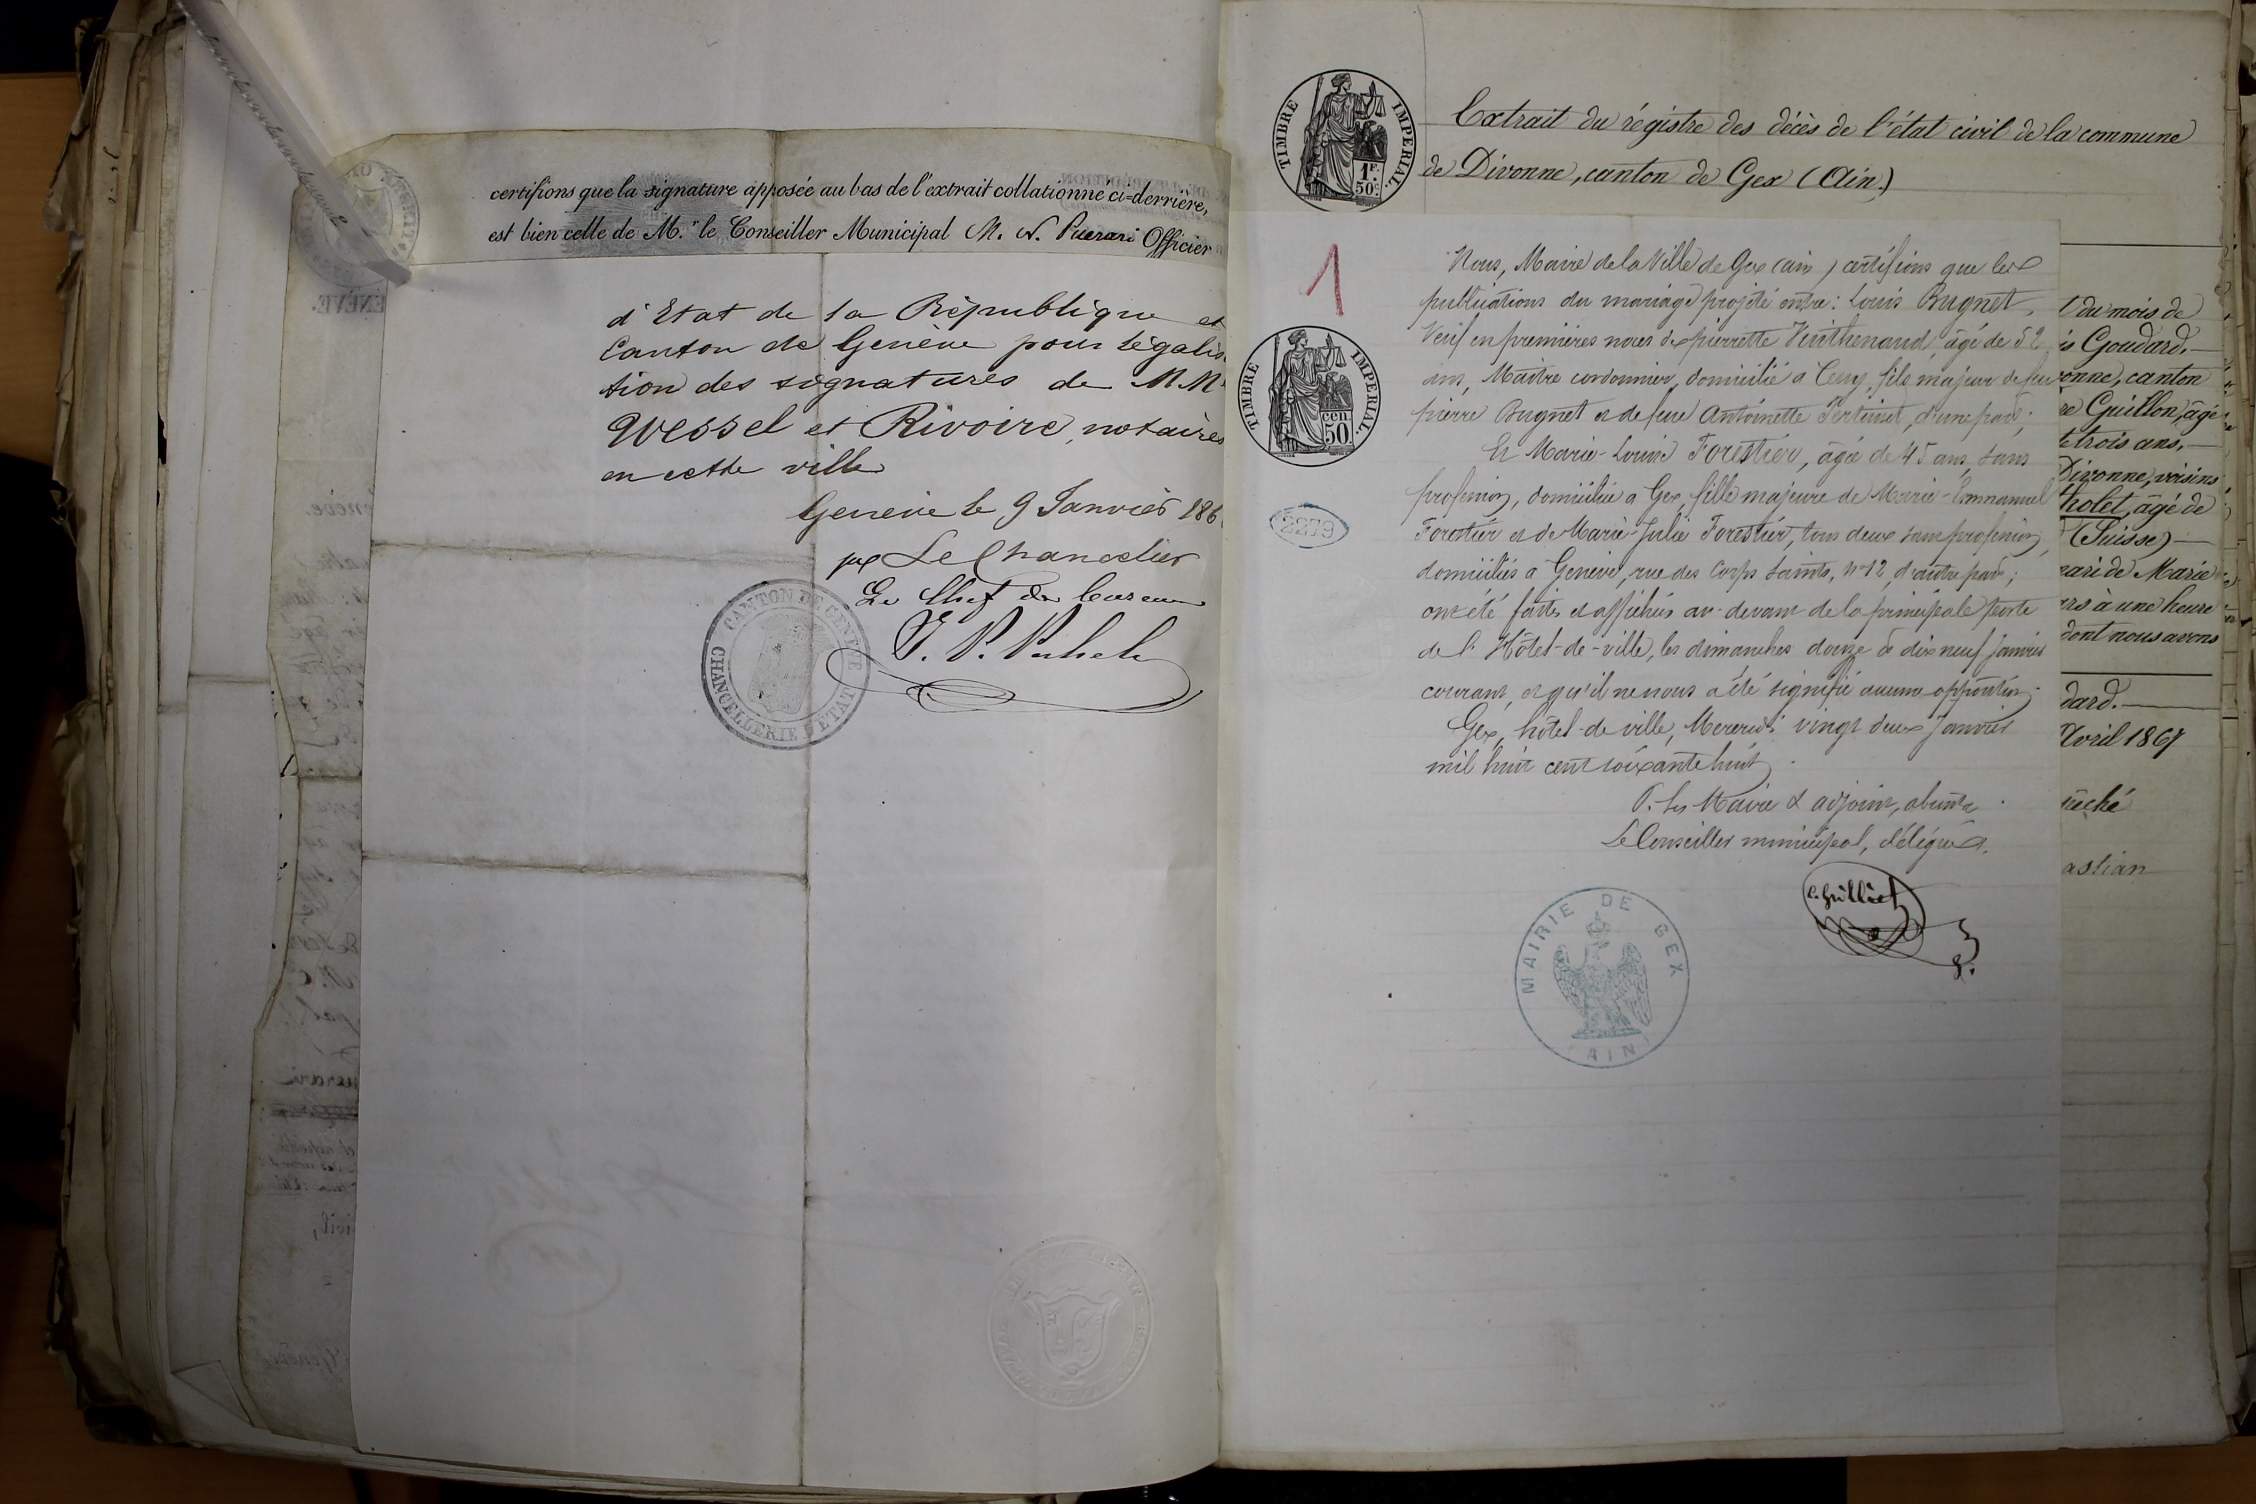 certifions que la signature apposée au bas de l'extrait collationné ci-derrière,
est bien celle de M. le Conseiller Municipal M. N. Puerari Officier
d'Etat de la République et
Canton de Genève pour légalis
tion des signatures de MM
Wessel et Rivoire, notaires
en cette ville
Genève le 9 Janvier 186
Le Chancelier
Le Chef de bureau
CANTON DE GENÈVE
CHANCELLERIE D'ETAT
TIMBRE IMPERIAL
1F 50c
Extrait du régistre des décès de l'état civil de la commune
de Divonne, canton de Gex (Ain.)
1
TIMBRE IMPERIAL
50 cen
2279
Nous, Maire de la Ville de Gex (ain) certifions que les
publications du mariage projeté entre: Louis Bugnet,
Veuf en premières noces de pierrette Vuithenaud, âgé de 52
ans, Maître cordonnier, domicilié a Cessy, fils majeur de feu
pierre Bugnet et de feue Antoinette, d'une part;
Et Marie-Louise Forestier, âgée de 45 ans, sans
profession, domiciliée a Gex, fille majeure de Marie-Emmanuel
Forestier et de Marie-Julie Forestier, tous deux sans profession,
domiciliés a Genève, rue des Corps Saints, n° 12, d'autre part;
ont été faites et affichées au-devant de la principale porte
de l'Hôtel-de-ville, les dimanches douze & dix neuf Janvier
courant, et qu'il ne nous a été signifié aucune opposition.
Gex, hôtel-de ville, Mercredi vingt deux Janvier
mil huit cent soixante huit.
P. les Maire & adjoint, absents
Le Conseiller municipal, délégué.
C. Guilliet
MAIRIE DE GEX
(AIN)
du mois de
Goudard.
onne, canton
Guillon, âgé
trois ans.
Divonne, voisins
holet, âgé de
(Suisse)
ari de Marie
rs à une heure
dont nous avons
dard.
Avril 1867
êché
astian